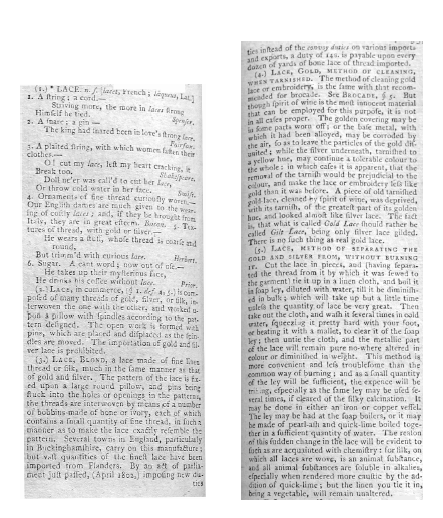 (1.) * LACE. n. ſ. [lacet, French; laqueus, Lat.]
1. A ſtring; a cord.—
Striving more, the more in laces ſtrong
Himſelf he tied. Spenſer.
2. A ſnare; a gin.—
The king had ſnared been in love's ſtrong lace.
Fairfax.
3. A plaited ſtring, with which women faſten their
clothes.—
O! cut my lace, left my heart cracking, it
Break too. Shakeſpeare.
Doll ne'er was call'd to cut her lace,
Or throw cold water in her face. Swift.
4. Ornaments of fine thread curiouſly woven.—
Our Engliſh dames are much given to the wear-
ing of coſtly laces; and, if they be brought from
Italy, they are in great eſteem. Bacon. 5. Tex-
tures of thread, with gold or ſilver.—
He wears a ſtuff, whoſe thread is coarſe and
round,
But trimm'd with curious lace. Herbert.
6. Sugar. A cant word; now out of uſe.—
He takes up their myſterious face,
He drinks his coffee without lace. Prior.
(2.) LACE, in commerce, (§ 1. def. 4, 5.) is com-
poſed of many threads of gold, ſilver, or ſilk, in-
terwoven the one with the other, and worked u-
pon a pillow with ſpindles according to the pat-
tern deſigned. The open work is formed with
pins, which are placed and diſplaced as the ſpin-
dles are moved. The importation of gold and ſil-
ver lace is prohibited.
(3.) LACE, BLOND, a lace made of fine linen
thread or ſilk, much in the ſame manner as that
of gold and ſilver. The pattern of the lace is fix-
ed upon a large round pillow, and pins being
ſtuck into the holes or openings in the patterns,
the threads are interwoven by means of a number
of bobbins made of bone or ivory, each of which
contains a ſmall quantity of fine thread, in ſuch a
manner as to make the lace exactly reſemble the
pattern. Several towns in England, particularly
in Buckinghamſhire, carry on this manufacture;
but vaſt quantities of the fineſt lace have been
imported from Flanders. By an act of parlia-
ment juſt paſſed, (April 1802,) impoſing new du-
ties
ties inſtead of the convoy duties on various imports
and exports, a duty of is payable upon every
dozen of yards of bone lace of thread imported.
(4.) LACE, GOLD, METHOD OF CLEANING,
WHEN TARNISHED. The method of cleaning gold
lace, or embroidery, is the ſame with that recom-
mended for brocade. See BROCADE, § But
though ſpirit of wine is the moſt innocent material
that can be employed for this purpoſe, it is not
in all caſes proper. The golden covering may be
in ſome parts worn off; or the baſe metal, with
which it had been alloyed, may be corroded by
the air, ſo as to leave the particles of the gold diſ-
united; while the ſilver underneath, tarniſhed to
a yellow hue, may continue a tolerable colour to the
whole: in which caſes it is apparent, that the
removal of the tarniſh would be prejudicial to the
colour, and make the lace or embroidery leſs like
gold than it was before. A piece of old tarniſhed
gold lace, cleaned by ſpirit of wine, was deprived,
with its tarniſh, of the greateſt part of its golden
hue, and looked almoſt like ſilver lace. The fact
is, that what is called Gold Lace ſhould rather be
called Gilt Lace, being only ſilver lace gilded.
There is no ſuch thing as real gold lace.
(5.) LACE, METHOD OF SEPARATING THE
GOLD AND SILVER FROM, WITHOUT BURNING
IT. Cut the lace in pieces, and (having ſepara-
ted the thread from it by which it was ſewed to
the garment) tie it up in a linen cloth, and boil it
in ſoap ley, diluted with water, till it be diminiſh-
ed in bulk; which will take up but a little time
unleſs the quantity of lace be very great. Then
take out the cloth, and waſh it ſeveral times in cold
water, ſqueezing it pretty hard with your foot,
or beating it with a mallet, to clear it of the ſoap
ley; then untie the cloth, and the metallic part
of the lace will remain pure no-where altered in
colour or diminiſhed in weight. This method is
more convenient and leſs troubleſome than the
common way of burning; and as a ſmall quantity
of the ley will be ſufficient, the expence will be
trifling, eſpecially as the ſame ley may be uſed ſe-
veral times, if cleared of the ſilky calcination. It
may be done in either an iron or copper veſſel.
The ley may be had at the ſoap boilers, or it may
be made of pearl-aſh and quick-lime boiled toge-
ther in a ſufficient quantity of water. The reaſon
of this ſudden change in the lace will be evident to
ſuch as are acquainted with chemiſtry: for ſilk, on
which all laces are wove, is an animal ſubſtance,
and all animal ſubſtances are ſoluble in alkalies,
eſpecially when rendered more cauſtic by the ad-
dition of quick-lime; but the linen you tie it in,
being a vegetable, will remain unaltered.